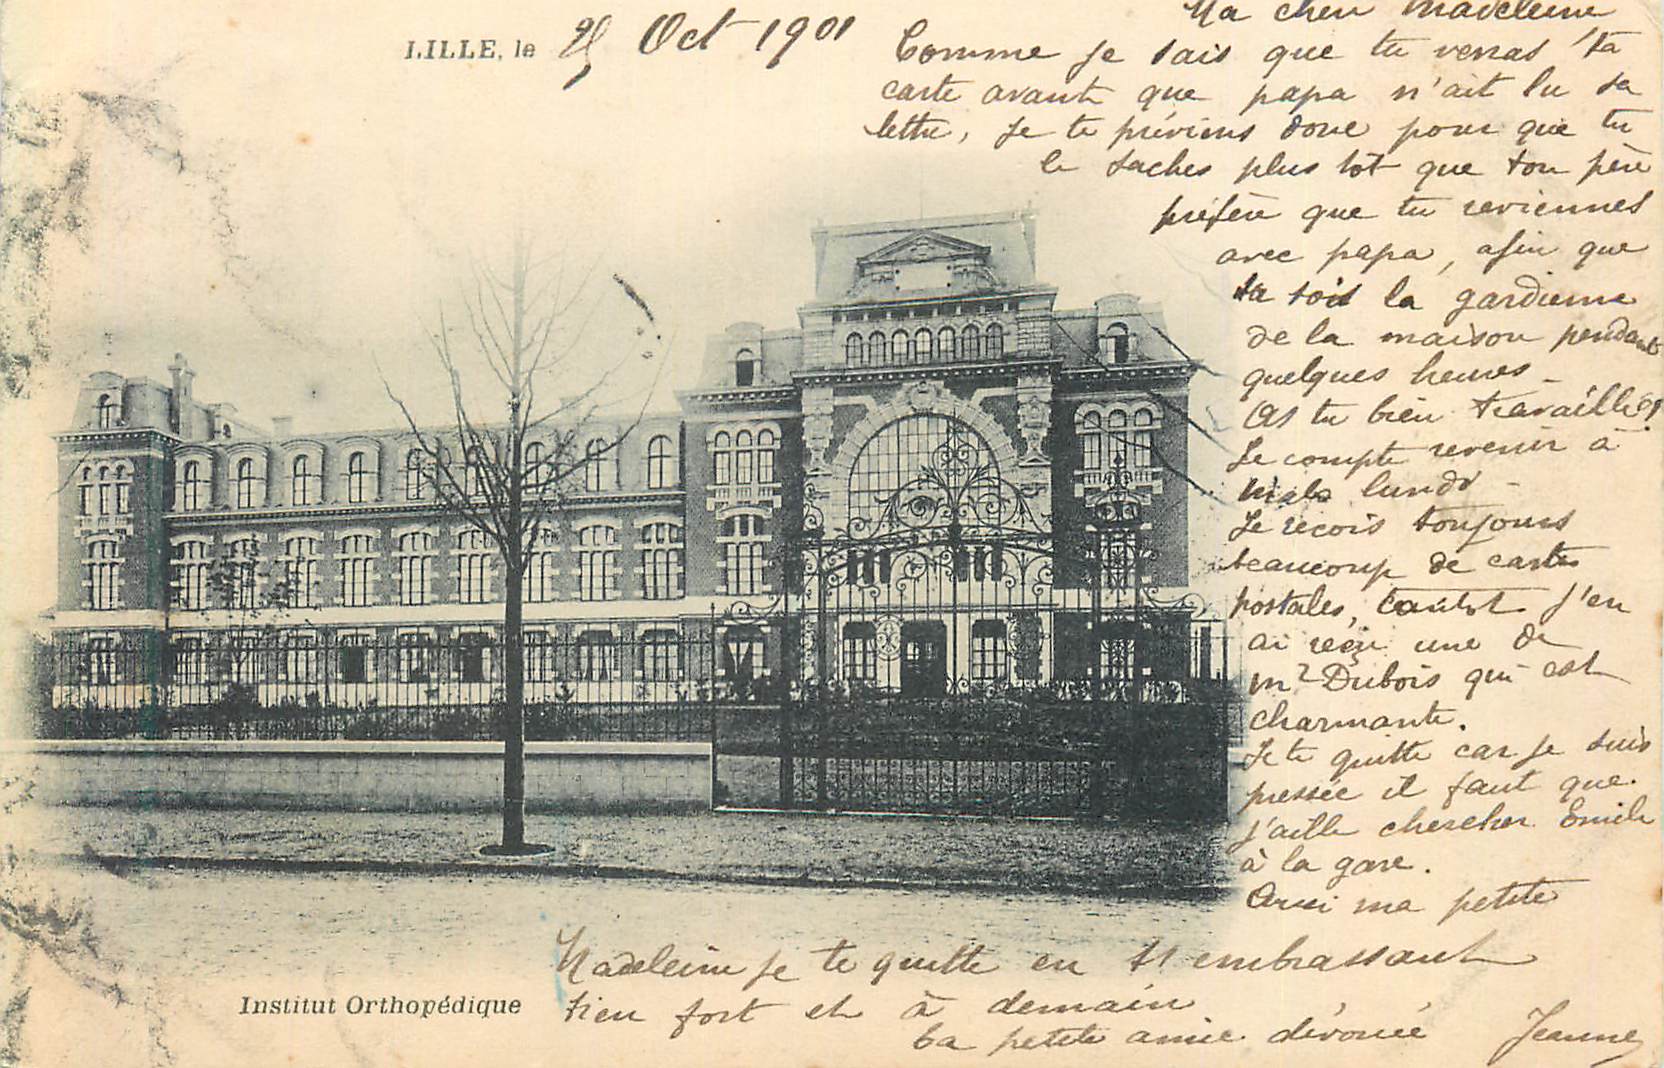 LILLE, le 25 Oct 1901
Ma chère Madeleine
Comme je sais que tu verras ta
carte avant que papa n'ait lu sa
lettre, je te préviens donc pour que tu
le saches plus tôt que ton père
préfère que tu reviennes
avec papa, afin que
tu sois la gardienne
de la maison pendant
quelques heures –
As tu bien travaillé?
Je compte revenir à
lundi –
Je reçois toujours
beaucoup de cartes
postales, tantôt j'en
ai reçu une de
Dubois qui est
charmante.
Je te quitte car je suis
pressée il faut que
j'aille chercher Emile
à la gare.
Ainsi ma petite
Madeleine je te quitte en t'embrassant
bien fort et à demain
ta petite amie dévouée Jeanne
Institut Orthopédique